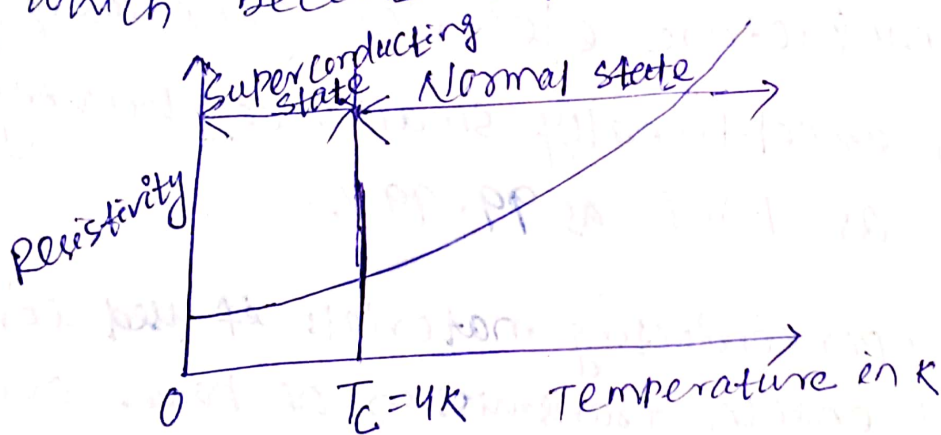 which bec
Superconducting
state
Normal state
Resistivity
0
Tc=4K
Temperature in K